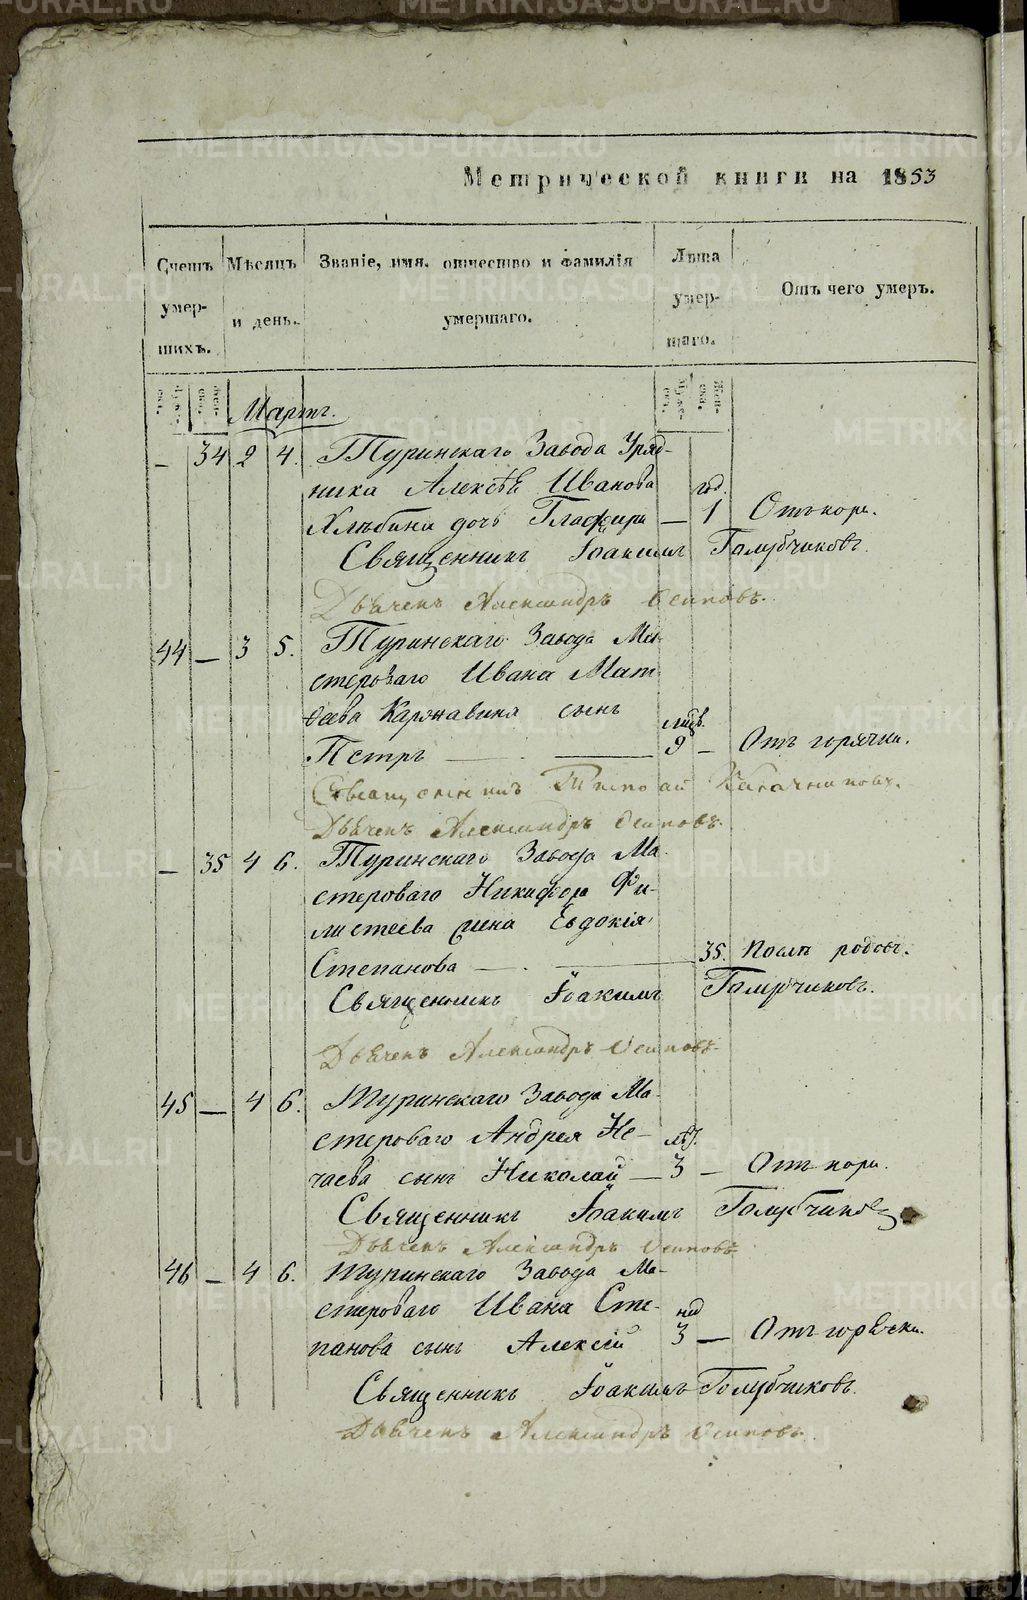 METRIKI.GASO-URAL.RU
Метрической книги на 1853
Счетъ умер- шихъ.
Мѣсяцъ и день.
Званіе, имя, отчество и фамилія умершаго.
Лѣта умер- шаго.
Отъ чего умеръ.
Мартъ.
— 34 2 4. Туринскаго Завода Уряд-
ника Алексѣя Иванова год.
Хлѣбина дочь Глафира — 1 Отъ кори.
Священникъ Іоакимъ Голубчиковъ.
Дьячекъ Александръ Осиповъ.
44 — 3 5. Туринскаго Завода Ма-
стероваго Ивана Мат-
веева Каржавина сынъ
Петръ — 9 — Отъ горячки.
Священникъ Кабачниковъ.
Дьячекъ Александръ Осиповъ.
— 35 4 6. Туринскаго Завода Ма-
стероваго Никифора Фи-
листеева жена Евдокія
Степанова — 35. После родовъ.
Священникъ Іоакимъ Голубчиковъ.
Дьячекъ Александръ Осиповъ.
45 — 4 6. Туринскаго Завода Ма-
стероваго Андрея Не- лѣт.
чаева сынъ Николай — 3 — Отъ кори.
Священникъ Іоакимъ Голубчиковъ
Дьячекъ Александръ Осиповъ.
46 — 4 6. Туринскаго Завода Ма-
стероваго Ивана Сте- нед
панова сынъ Алексѣй 3 — Отъ горячки.
Священникъ Іоакимъ Голубчиковъ.
Дьячекъ Александръ Осиповъ.